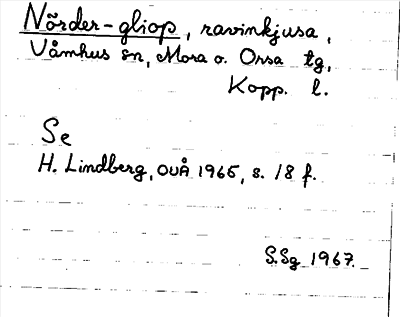 Nõrder-gliop, ravinkjusa,
Våmhus sn, Mora o. Orsa tg,
Kopp. l.
Se
H. Lindberg, OUÅ 1965, s. 18 f.
S.Sg 1967.